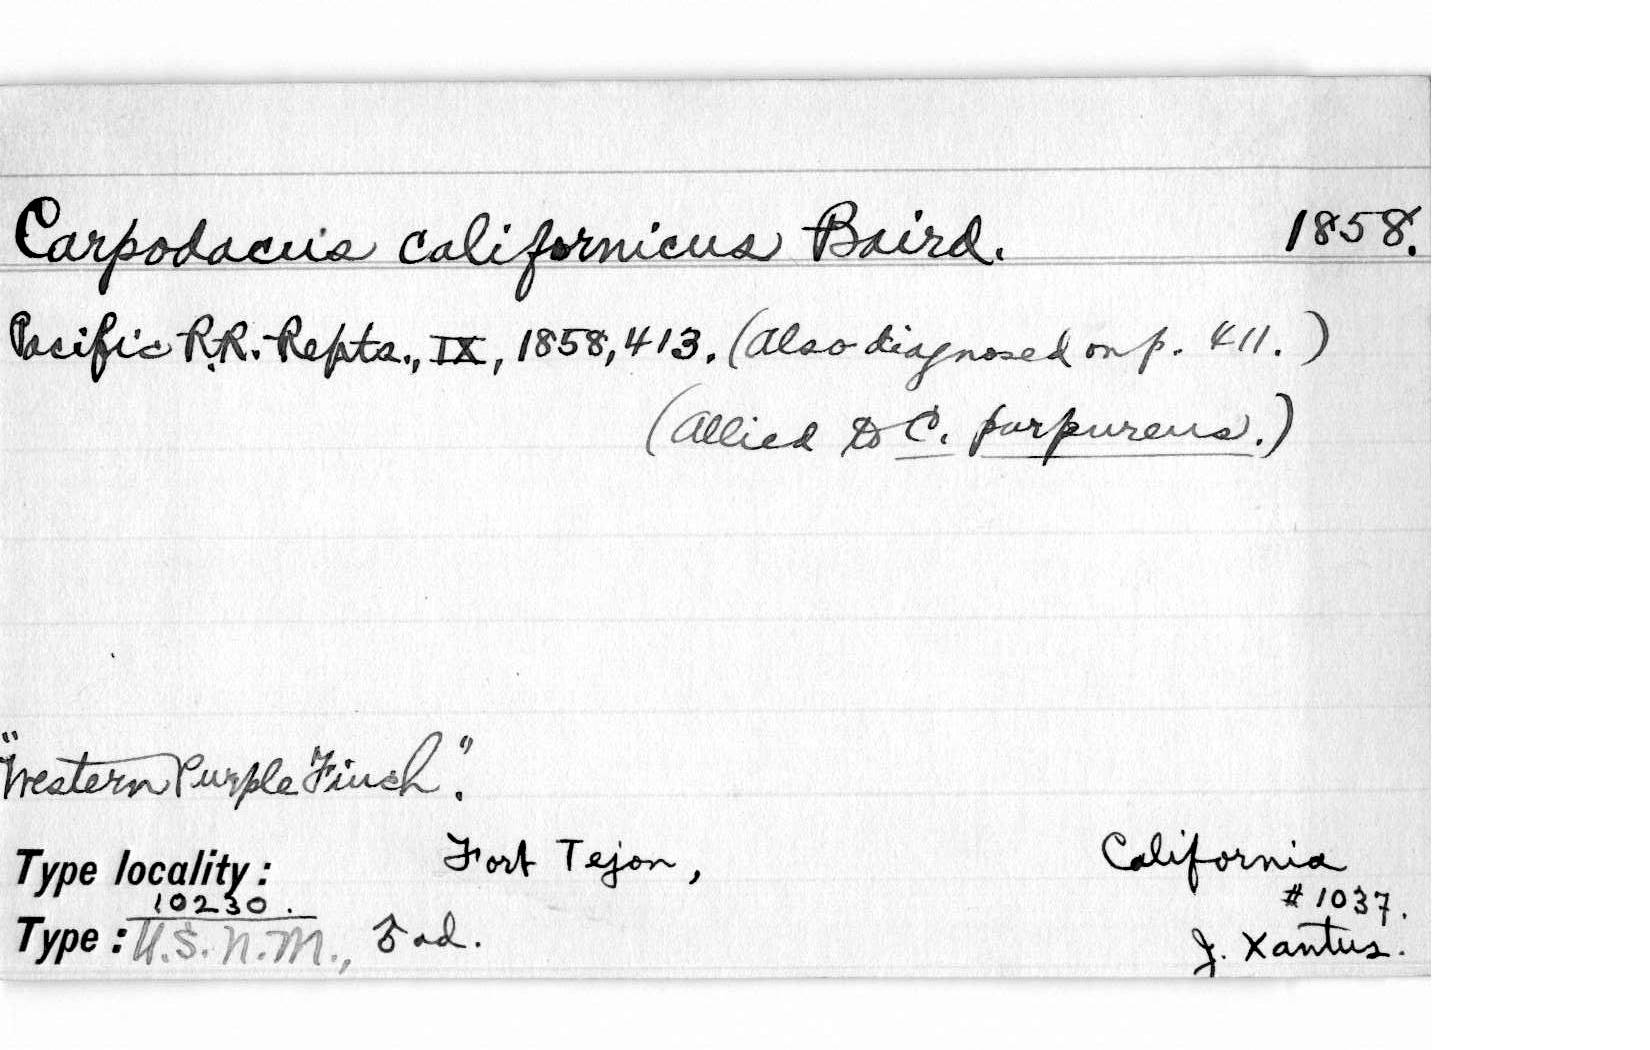 Carpodacus californicus Baird. 1858.
Pacific R.R. Repts., IX, 1858, 413. (Also diagnosed on p. 411.)
(Allied to C. purpureus.)
"Western Purple Finch".
Type locality: Fort Tejon, California
10230. #1037.
Type: U.S.N.M., ad. J. Xantus.